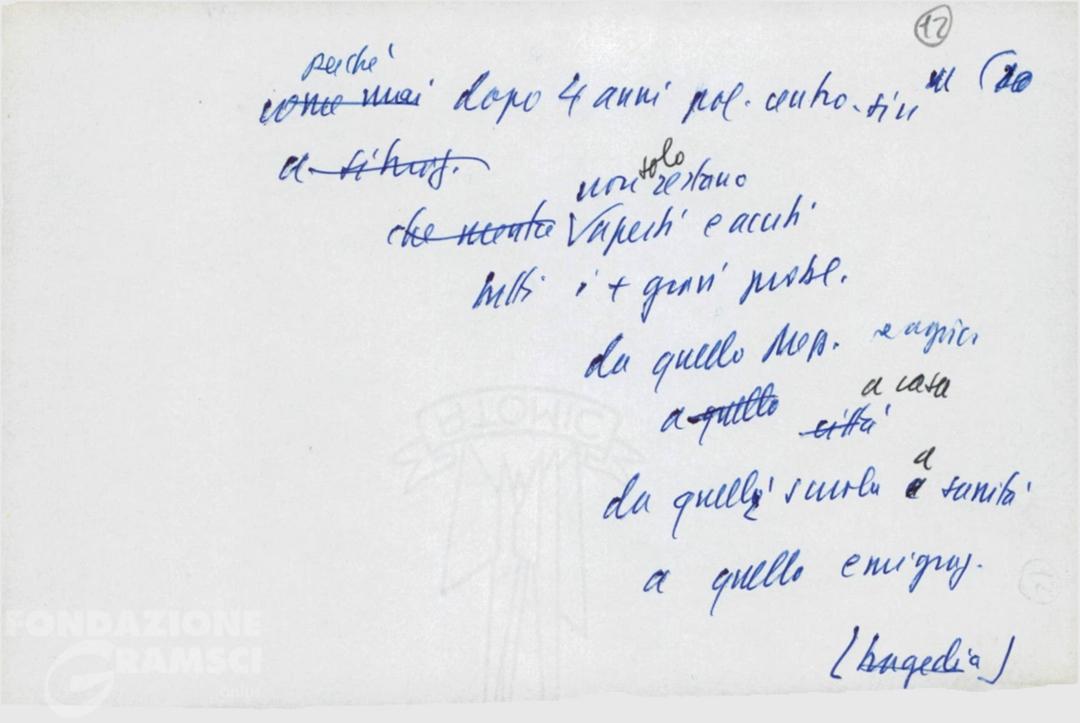 12
perché
come mai dopo 4 anni pol. centro-sin
a situaz.
non solo restano
che mentre aperti e acuti
tutti i + gravi probl.
da quello Mezz. e agric.
a quello città a casa
da quelli scuola a sanità
a quello emigraz.
(tragedia)
FONDAZIONE
GRAMSCI